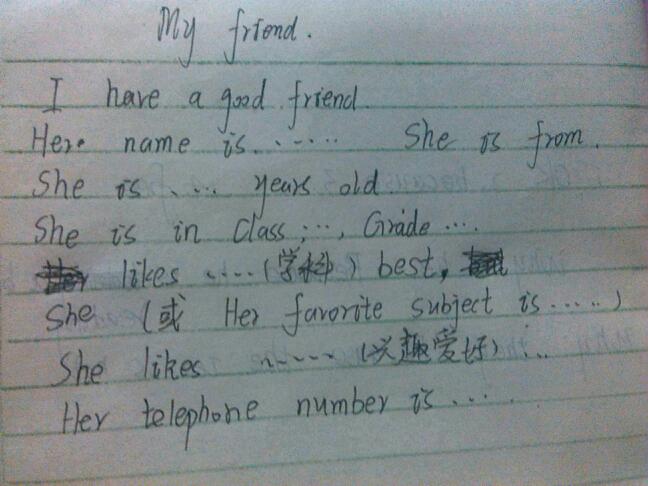 My friend.
I have a good friend.
Here name is...... She is from.
She is .... years old
She is in Class ...., Grade ....
likes .....(学科) best,
She (或 Her favorite subject is .....)
She likes ...... (兴趣爱好)...
Her telephone number is .....